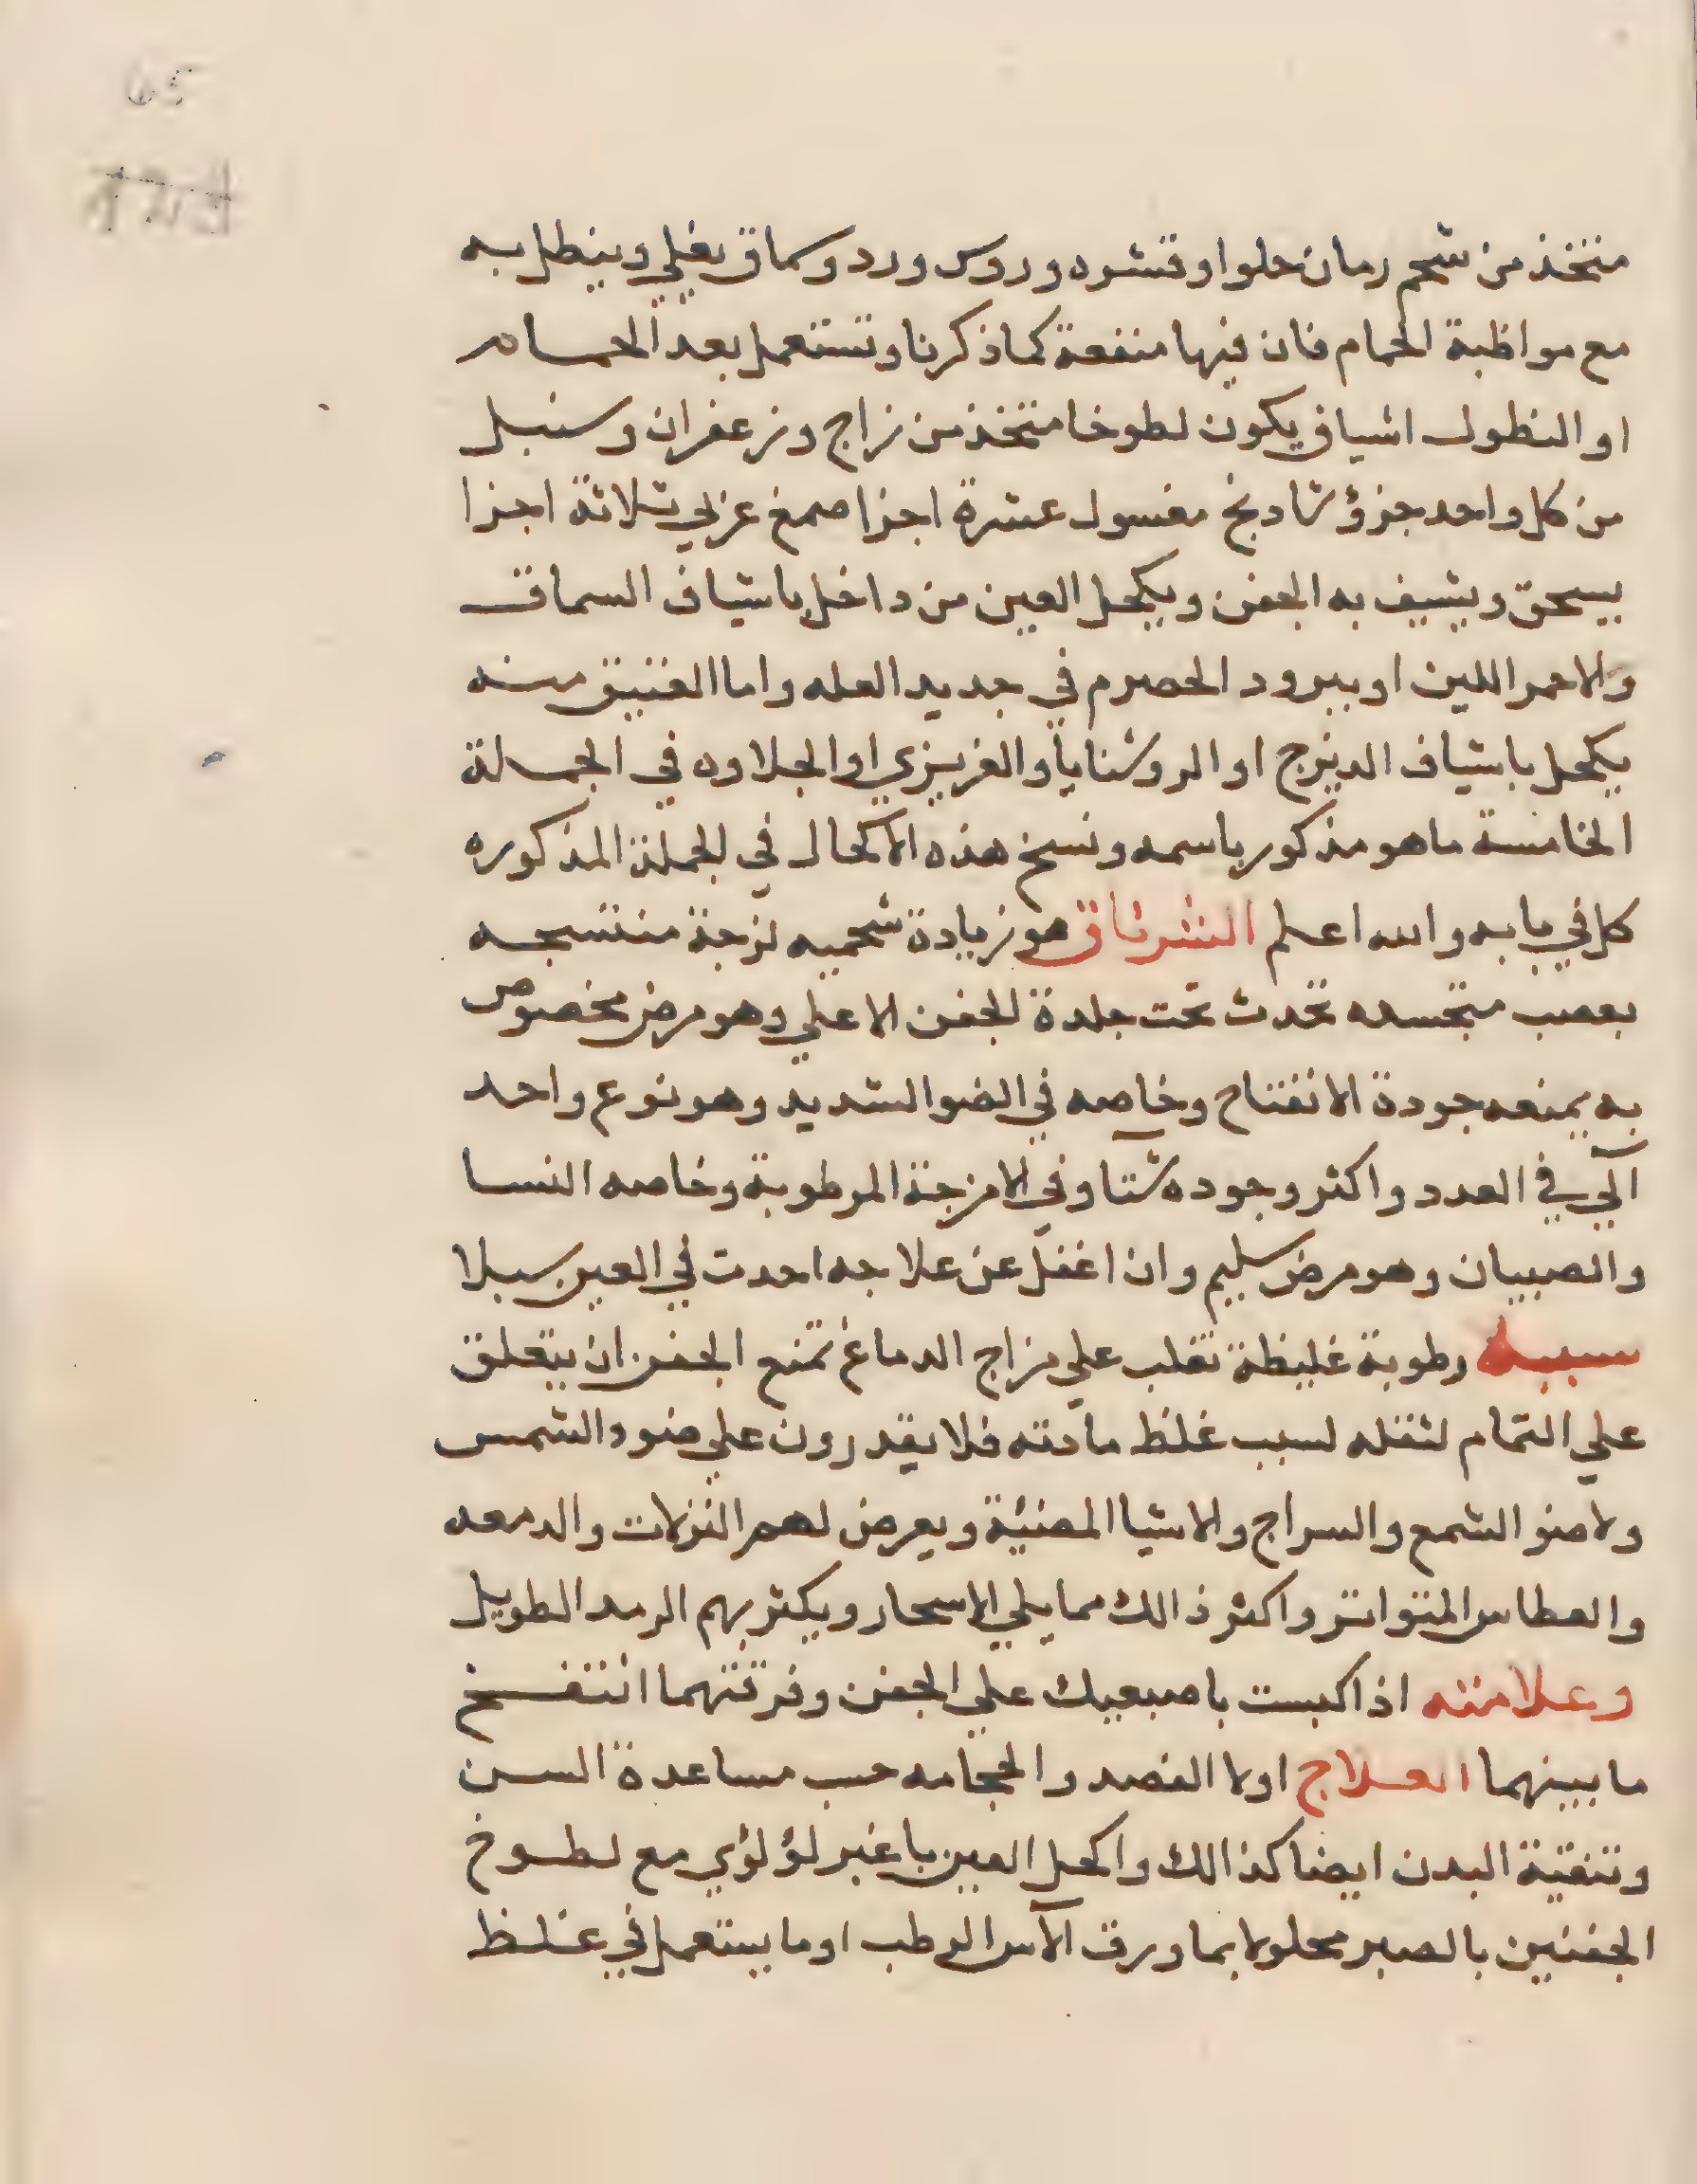 65
متخذ من شحم رمان حلوا وقشره وروس ورد وسماق يغلي وينطل به
مع مواظبة الحمام فان فيها منفعة كما ذكرنا وتستعمل بعد الحمام
او النطول اشياف يكون لطوخا متخذ من زاج وزعفران وسنبل
من كل واحد جزؤ شادنج مغسول عشرة اجزا صمغ عربي ثلاثة اجزا
يسحق ويشيف به الجفن ويكحل العين من داخل باشياف السماق
والاحمر اللين او ببرود الحصرم في جديد العله واما العتيق منه
يكحل باشياف الديزج او الروشنايا والعزيزي او الجلاوه في الجملة
الخامسة ماهو مذكور باسمه ونسخ هذه الاكحال في الجملة المذكوره
كل في بابه والله اعلم الشرناق هو زيادة شحميه لزجة منتسجه
بعصب متجسده تحدث تحت جلدة الجفن الاعلي وهو مرض مخصوص
به يمنعه جودة الانفتاح وخاصه في الضو الشديد وهو نوع واحد
آلي في العدد واكثر وجوده شتآ وفي الامزجة المرطوبة وخاصه النسا
والصبيان وهو مرض سليم وان اغفل عن علاجه احدث في العين سبلا
سببه رطوبة غليظة تغلب علي مزاج الدماغ تمنع الجفن ان يتعلق
علي التمام لثقله لسبب غلظ مادته فلا يقدرون علي ضوء الشمس
ولا ضو الشمع والسراج والاشيا المضيئة ويعرض لهم النزلات والدمعه
والعطاس المتواتر واكثر ذالك مما يلي الاسحار ويكثر بهم الرمد الطويل
وعلامته اذا كبست باصبعيك علي الجفن وفرقتهما انتفخ
ما بينهما العلاج اولا الفصد والحجامه حسب مساعدة السن
وتنقية البدن ايضا كذالك واكحل العين باغبر لؤلؤي مع لطوخ
الجفنين بالصبر محلولا بما ورق الآس الرطب او ما يستعمل في غلظ